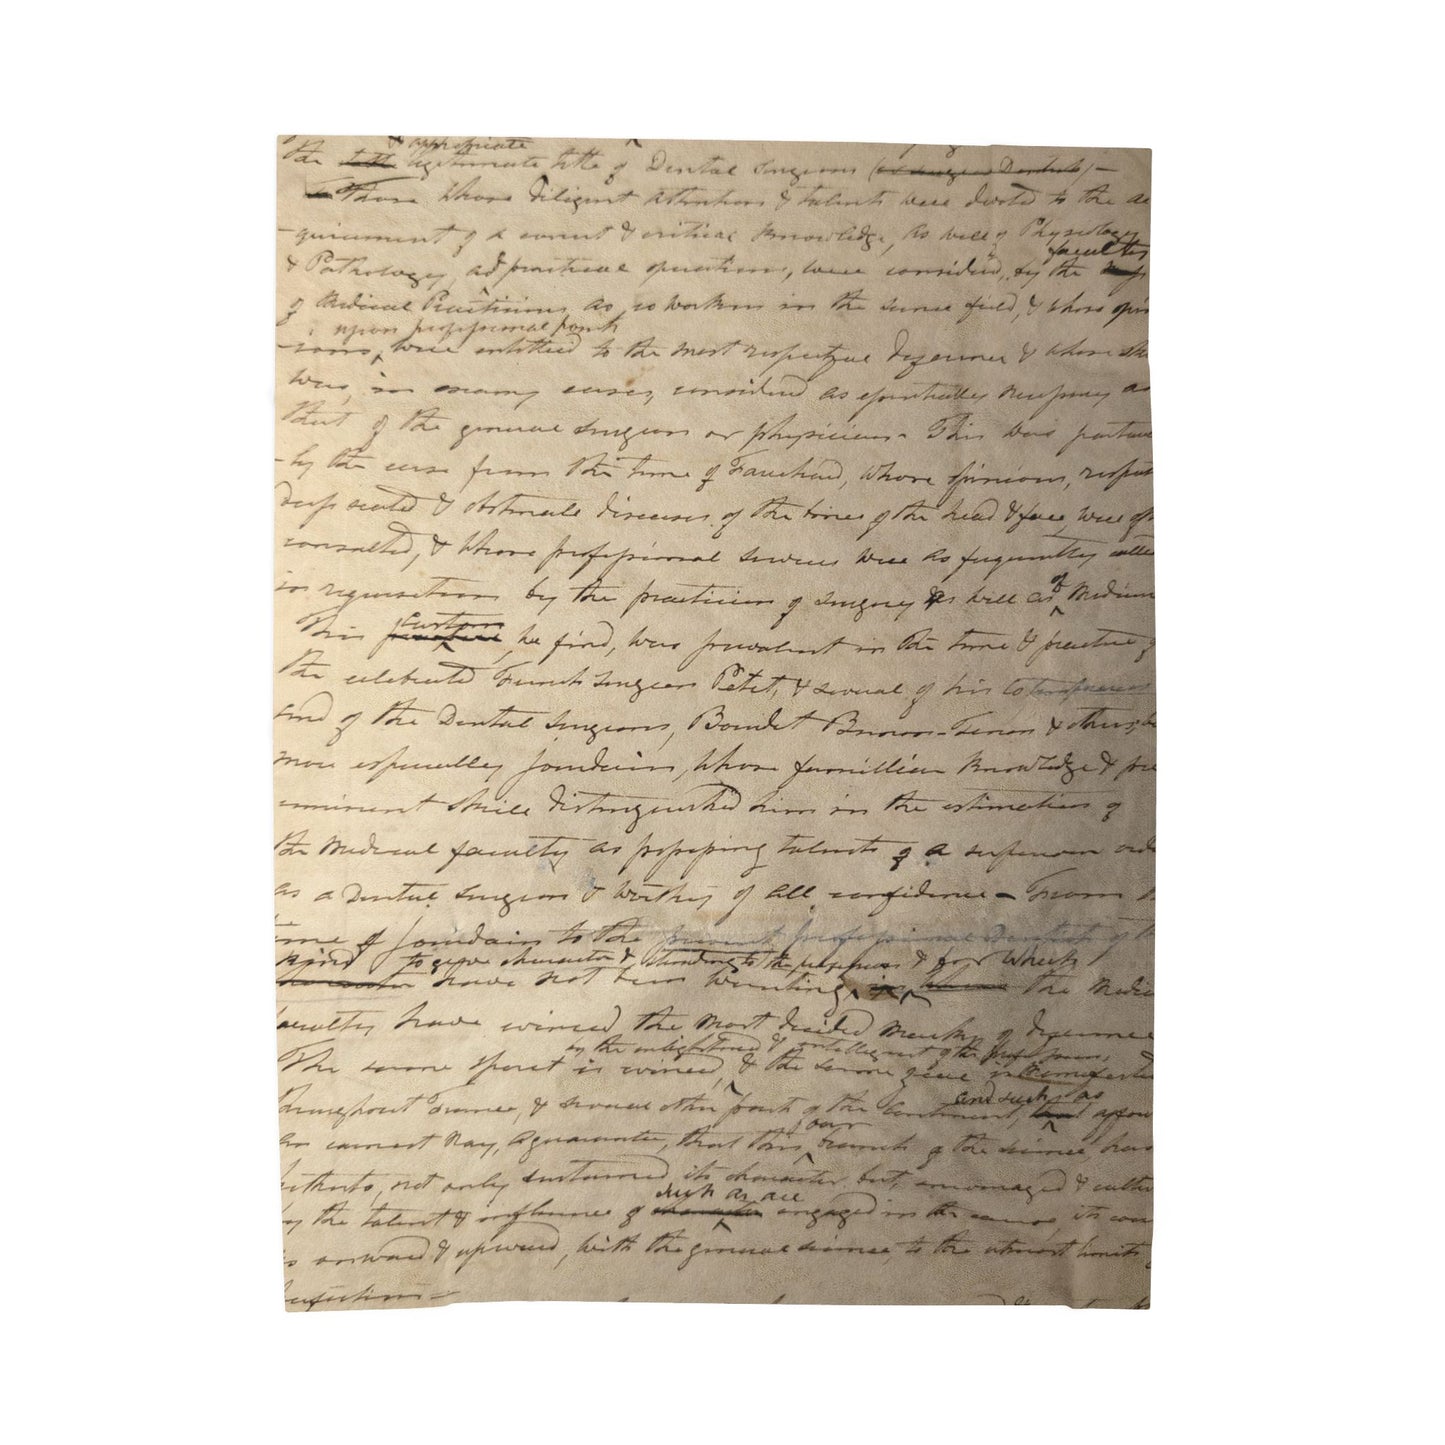 & appropriate
the legitimate title of Dental Surgeons (or Surgeon Dentists) —
To Those whose diligent attention & talents were devoted to the ac
-quirement of a correct & critical knowledge, as well of Physiology
faculties
& Pathology, as practical operations, were considered, by the
of Medical Practitioners as co workers in the same field, & whose opin
upon professional points
-ions, were entitled to the most respectful deference & whose
was, in many cases, considered as essentially necessary as
that of the general surgeon or physician - This was
-ly the case from the time of Fauchard, whose opinions,
deep seated & obstinate diseases of the bones of the head & face, were
consulted, & whose professional services were as frequently called
in requisition by the practitioners of surgery as well as of Medicine
custom
This practice, he find, was prevalent in the time & practice of
the celebrated French surgeon Petit, & several of his
and of the Dental Surgeons, Bourdet & others,
more especially Jourdain, whose familliar knowledge &
eminent skill distinguished him in the estimation of
the Medical faculty as possessing talents of a superior
as a Dental surgeon & worthy of all confidence - From
time of Jourdain to the present professional Dentists of
to give character & standing to the profession & for which
character have not been wanting, the
faculty have evinced the most decided marks of deference
by the enlightened & intelligent of the profession,
The same spirit is evinced, & the same
and such as
throughout France, & several other parts of the Continent,
our
an earnest nay, a guarantee, that this, branch of the science has
hitherto, not only sustained its character but, encouraged &
such as are
by the talent & influence of character engaged in the cause, its
is onward & upward, with the general science, to the utmost limits
perfection —